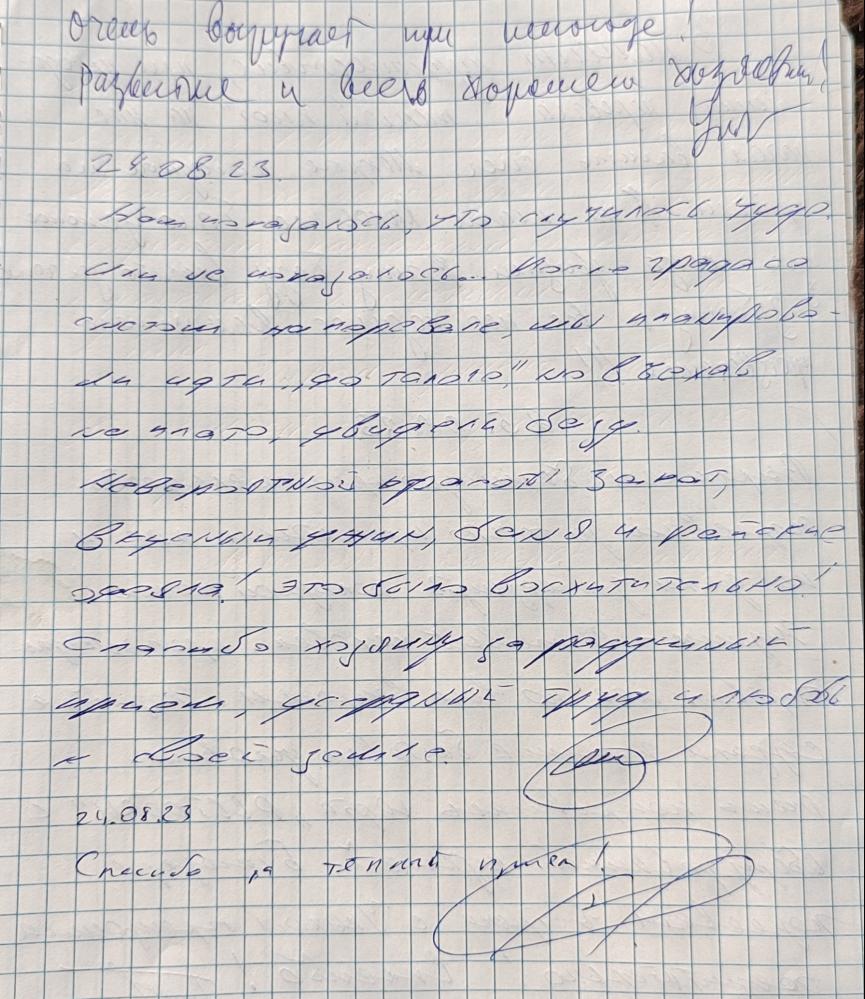 Очень выручает при непогоде!
Развития и всего хорошего хозяевам!
24.08.23.
Нам показалось, что случилось чудо.
Или не показалось... После града со
снегом на перевале, мы планирова-
ли идти "до талого", но въехав
на плато, увидели базу.
Невероятной красоты закат,
вкусный ужин, баня и райские
одеяла! Это было восхитительно!
Спасибо хозяину за радушный
приём, усердный труд и любовь
к своей земле.
24.08.23
Спасибо за тёплый прием!